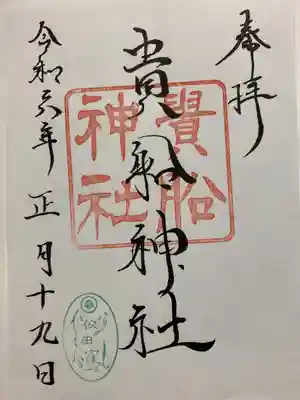 奉拝
貴船神社
貴船
神社
令和六年 正月十九日